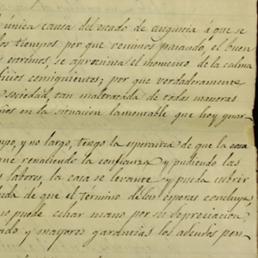 única causa del estado de angustia á que se
los tiempos por que venimos pasando, el buen
se aproxima el momento de la calma
consiguientes; por que verdaderamente
sociedad, tan maltratada de todas maneras
en la situacion lamentable que hoy guar
y no largo, tengo la esperanza de que la casa
renaciendo la confianza y pudiendo las
labores, la casa se levante y pueda cubrir
de que el término de las esperas concluya,
puede echar mano por su depreciacion
y mayores garantias los adeudos pen